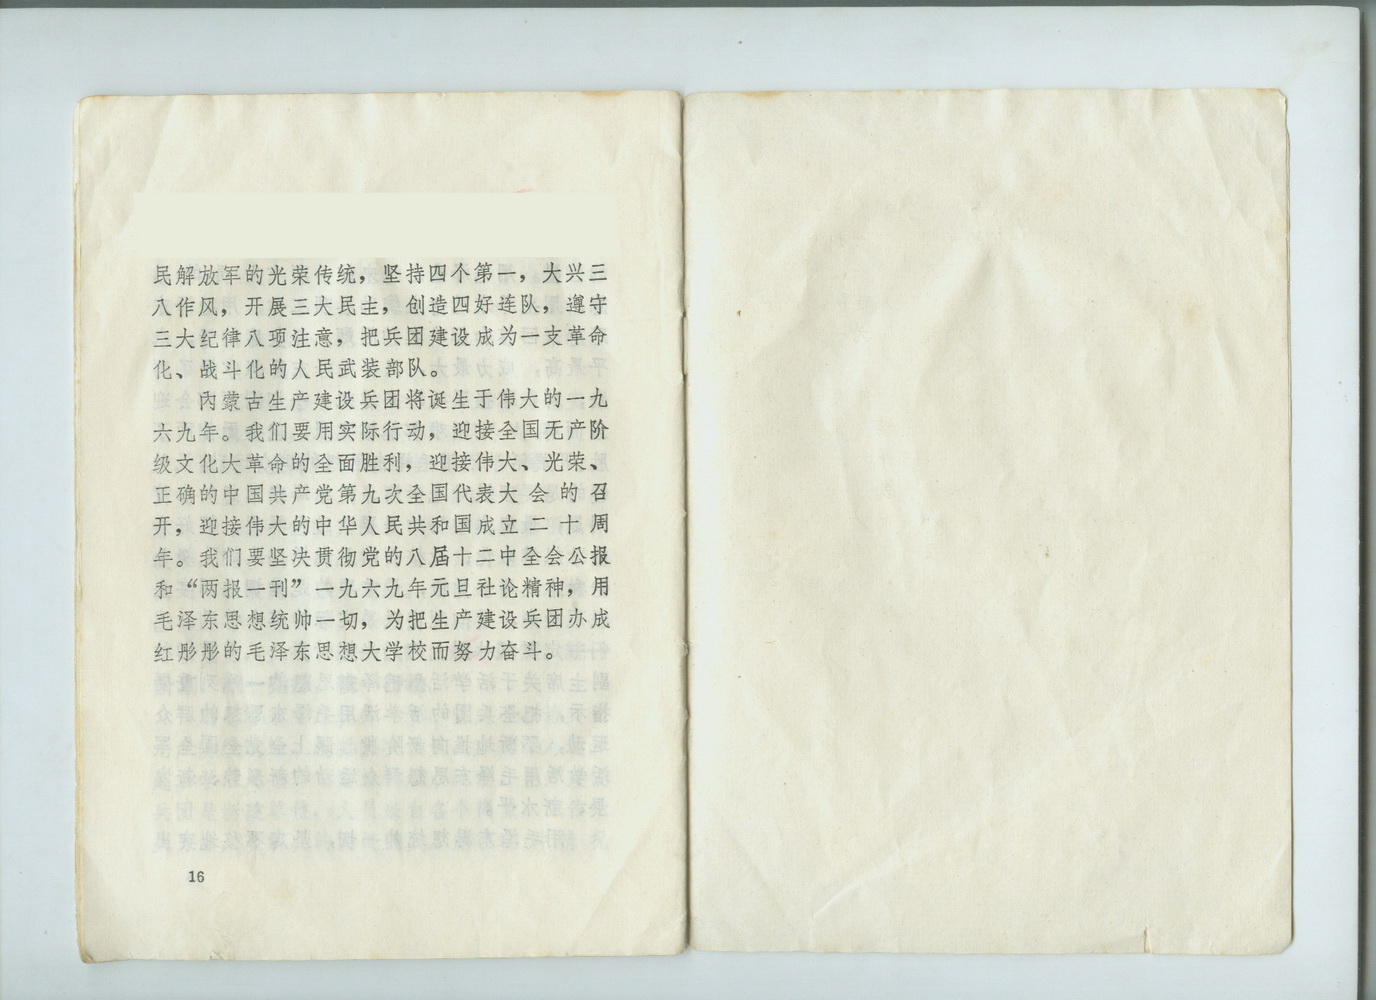 民解放军的光荣传统，坚持四个第一，大兴三
八作风，开展三大民主，创造四好连队，遵守
三大纪律八项注意，把兵团建设成为一支革命
化、战斗化的人民武装部队。
内蒙古生产建设兵团将诞生于伟大的一九
六九年。我们要用实际行动，迎接全国无产阶
级文化大革命的全面胜利，迎接伟大、光荣、
正确的中国共产党第九次全国代表大会的召
开，迎接伟大的中华人民共和国成立二十周
年。我们要坚决贯彻党的八届十二中全会公报
和“两报一刊”一九六九年元旦社论精神，用
毛泽东思想统帅一切，为把生产建设兵团办成
红彤彤的毛泽东思想大学校而努力奋斗。
16